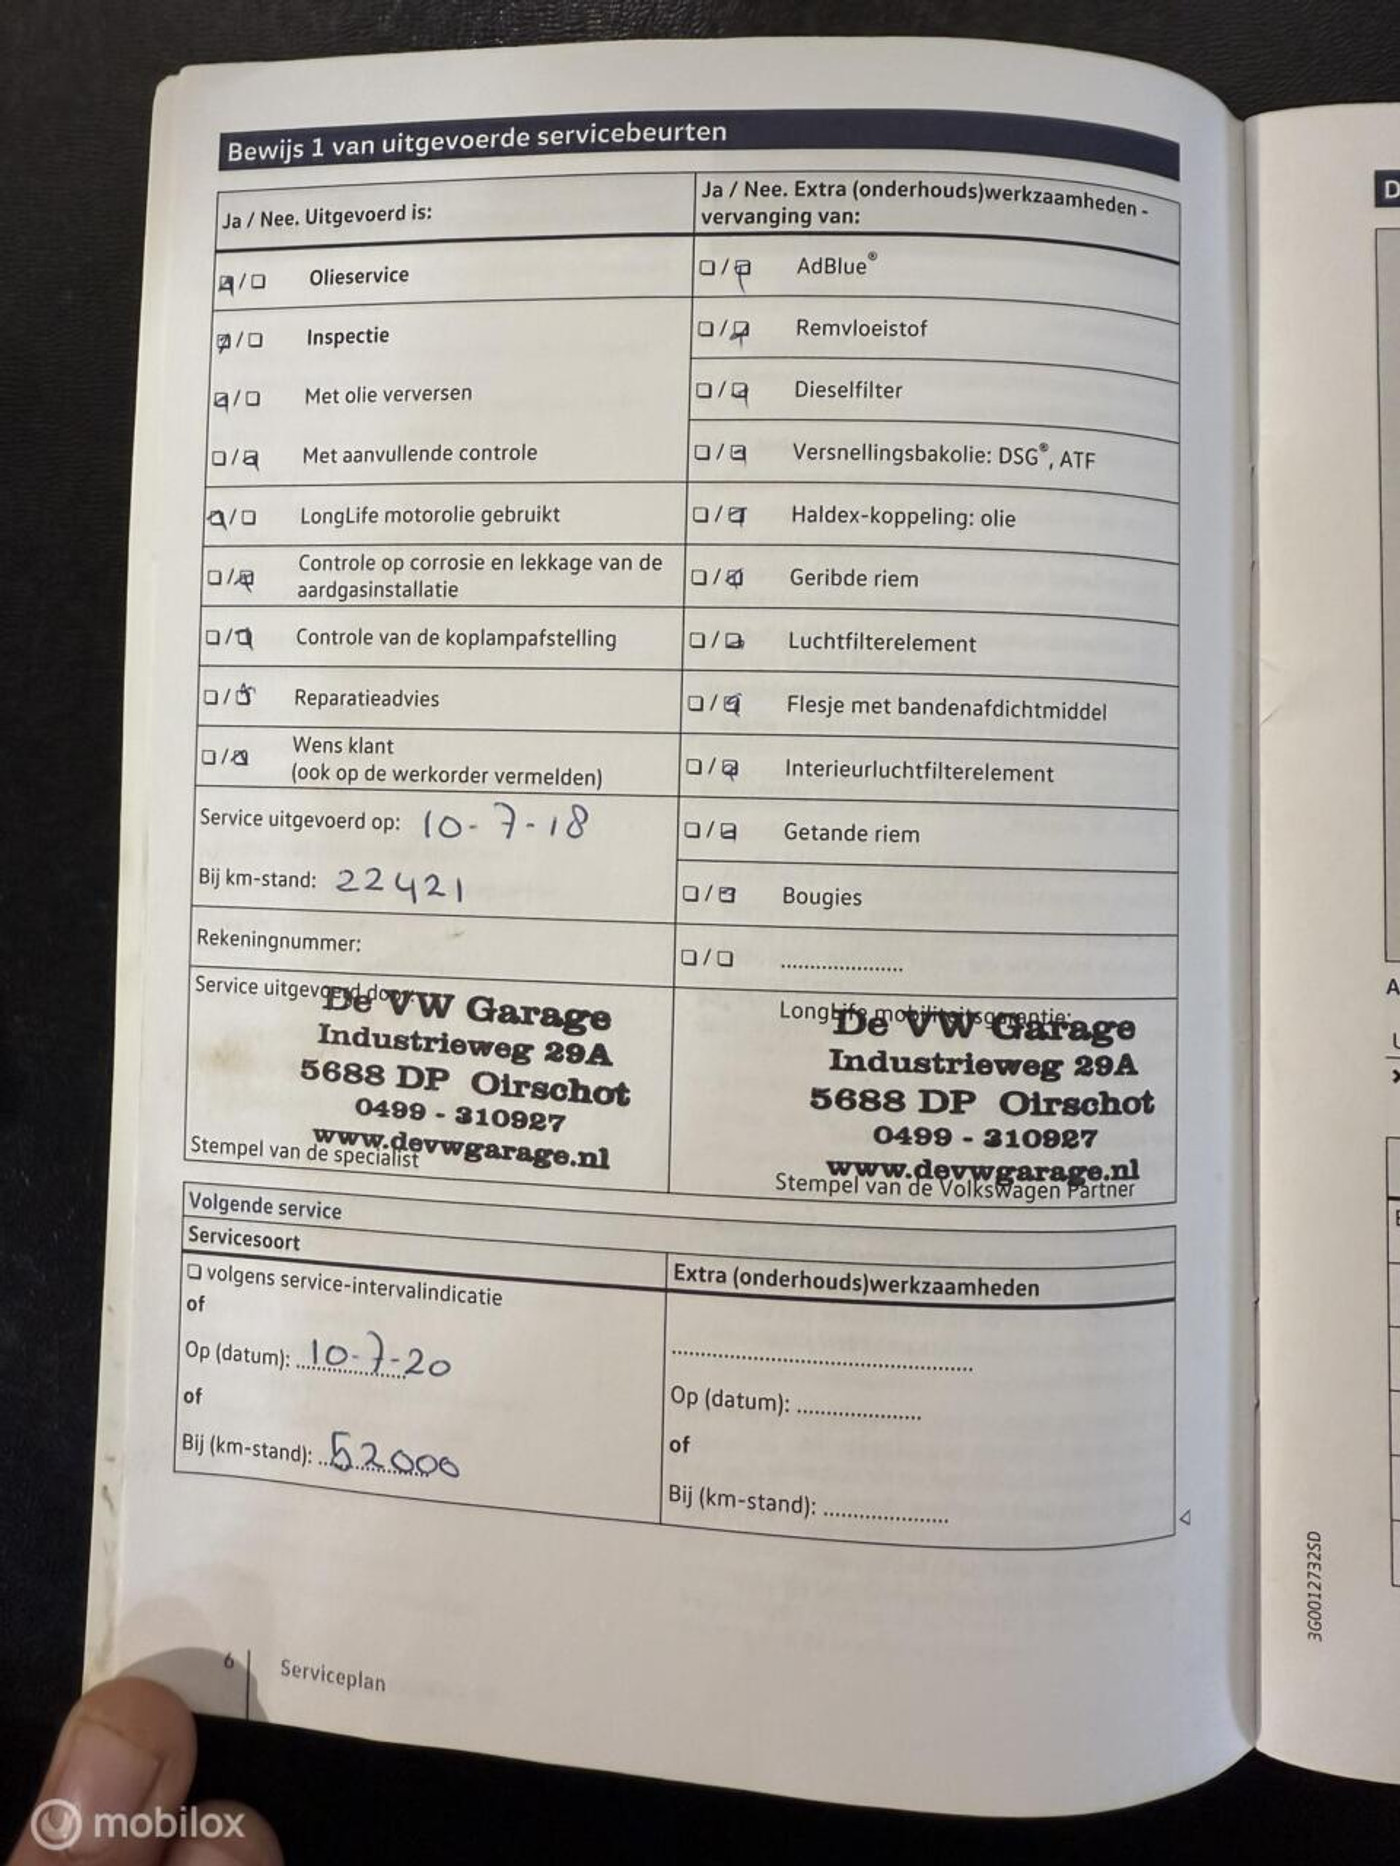 Bewijs 1 van uitgevoerde servicebeurten
Ja / Nee. Uitgevoerd is:
Ja / Nee. Extra (onderhouds)werkzaamheden -
vervanging van:
Olieservice
Inspectie
Met olie verversen
Met aanvullende controle
LongLife motorolie gebruikt
Controle op corrosie en lekkage van de
aardgasinstallatie
Controle van de koplampafstelling
Reparatieadvies
Wens klant
(ook op de werkorder vermelden)
Service uitgevoerd op: 10-7-18
Bij km-stand: 22421
Rekeningnummer:
AdBlue®
Remvloeistof
Dieselfilter
Versnellingsbakolie: DSG®, ATF
Haldex-koppeling: olie
Geribde riem
Luchtfilterelement
Flesje met bandenafdichtmiddel
Interieurluchtfilterelement
Getande riem
Bougies
.....................
Service uitgevoerd door:
De VW Garage
Industrieweg 29A
5688 DP Oirschot
0499 - 310927
www.devwgarage.nl
Stempel van de specialist
LongLife mobiliteitsgarantie:
De VW Garage
Industrieweg 29A
5688 DP Oirschot
0499 - 310927
www.devwgarage.nl
Stempel van de Volkswagen Partner
Volgende service
Servicesoort
volgens service-intervalindicatie
of
Op (datum): 10-7-20
of
Bij (km-stand): 52000
Extra (onderhouds)werkzaamheden
Op (datum): .....................
of
Bij (km-stand): .....................
6
Serviceplan
3G0012732SD
D
A
mobilox